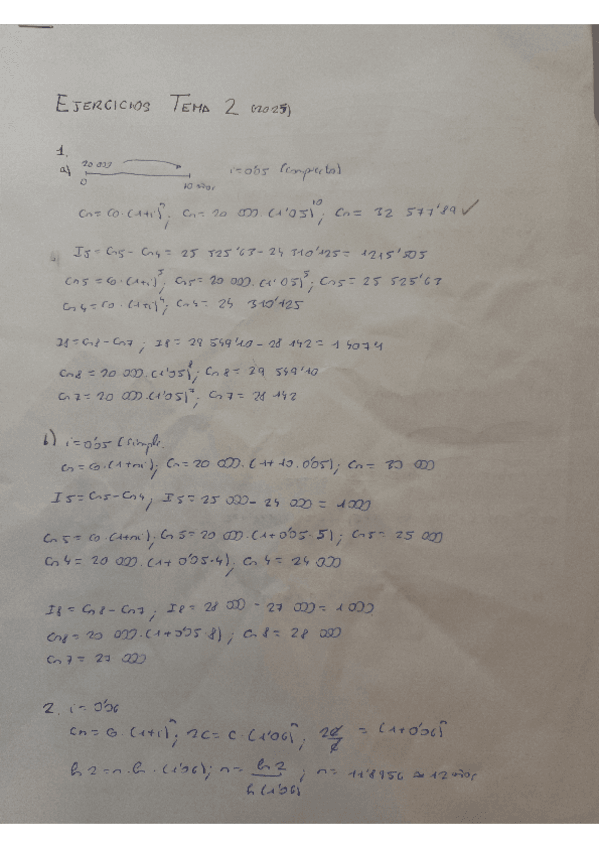 EJERCICIOS TEMA 2 (2025)
1.
a) 20 000
0 10 años
i=0'05 (compuesto)
Cn=Co.(1+i)^n; Cn=20 000.(1'05)^10; Cn= 32 577'89 ✓
I5=Cn5-Cn4= 25 525'63-24 310'125=1215'505
Cn5=Co.(1+i)^5; Cn5=20 000.(1'05)^5; Cn5=25 525'63
Cn4=Co.(1+i)^4; Cn4= 24 310'125
I8=Cn8-Cn7; I8= 29 549'10-28 142=1 407'1
Cn8=20 000.(1'05)^8; Cn8= 29 549'10
Cn7=20 000.(1'05)^7; Cn7= 28 142
b) i=0'05 (simple.
Cn=Co.(1+ni); Cn=20 000.(1+10.0'05); Cn= 30 000
I5=Cn5-Cn4; I5= 25 000-24 000=1000
Cn5=Co.(1+ni); Cn5=20 000.(1+0'05.5); Cn5= 25 000
Cn4=20 000.(1+0'05.4); Cn4= 24 000
I8=Cn8-Cn7; I8=28 000-27 000=1000
Cn8=20 000.(1+0'05.8); Cn8= 28 000
Cn7= 27 000
2. i=0'06
Cn=Co.(1+i)^n; 2C=C.(1'06)^n; 2C/C = (1+0'06)^n
ln 2=n.ln.(1'06); n= ln 2/ln(1'06); n= 11'8956 ≈ 12 años